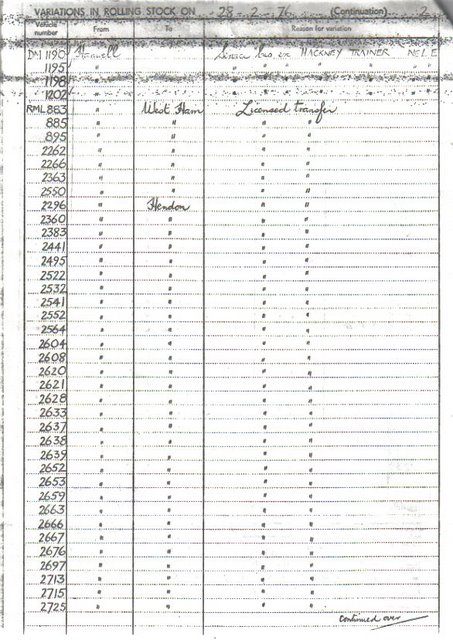 VARIATIONS IN ROLLING STOCK ON 28-2-76 (Continuation) 2
Vehicle number From To Reason for variation
DM 1190 HACKNEY TRAINER
1195 " " " "
1198 "
1202 "
RML 883 " West Ham Licensed transfer
885 " " " "
895 " " " "
2262 " " " "
2266 " " " "
2363 " " " "
2550 " " " "
2296 " Hendon " "
2360 " " " "
2383 " " " "
2441 " " " "
2495 " " " "
2522 " " " "
2532 " " " "
2541 " " " "
2552 " " " "
2564 " " " "
2604 " " " "
2608 " " " "
2620 " " " "
2621 " " " "
2628 " " " "
2633 " " " "
2637 " " " "
2638 " " " "
2639 " " " "
2652 " " " "
2653 " " " "
2659 " " " "
2663 " " " "
2666 " " " "
2667 " " " "
2676 " " " "
2697 " " " "
2713 " " " "
2715 " " " "
2725 " " " "
Continued over